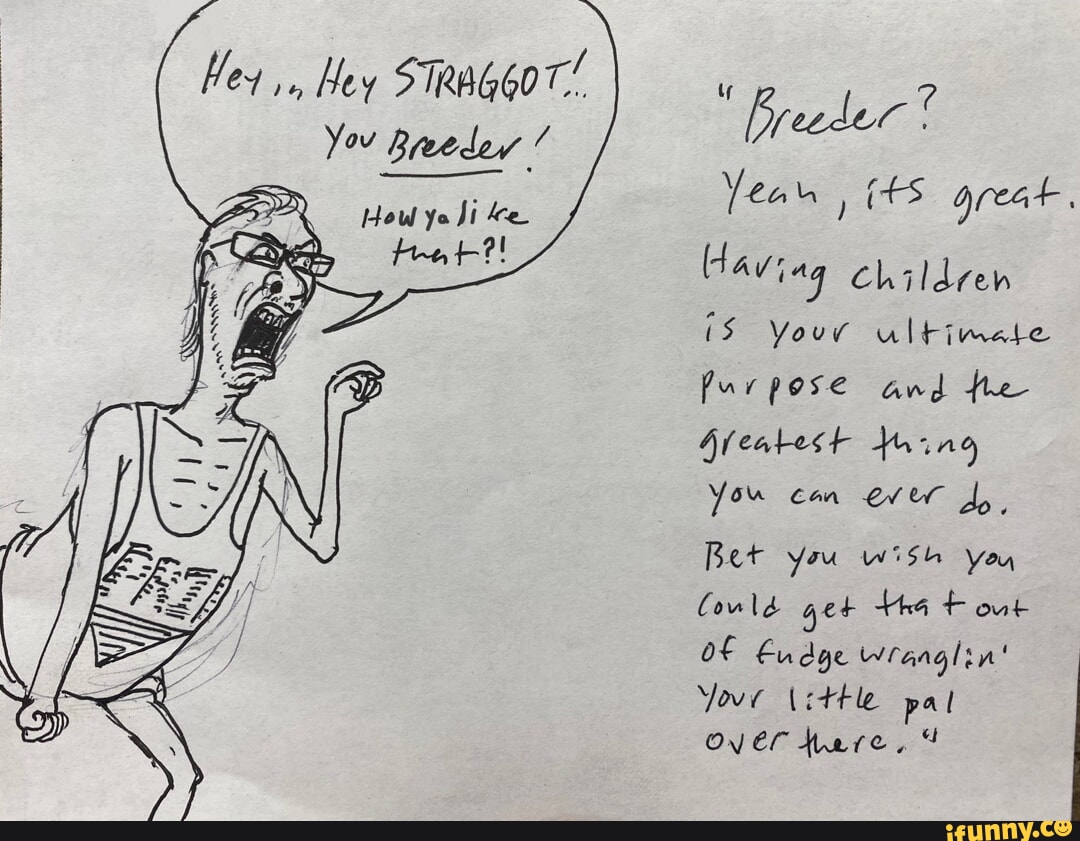 Hey,,, Hey STRAGGOT!..
You Breeder!
How ya like
that?!
"Breeder?
Yeah, its great.
Having children
is your ultimate
purpose and the
greatest thing
you can ever do.
Bet you wish you
could get that out
of fudge wranglin'
your little pal
over there."
ifunny.co